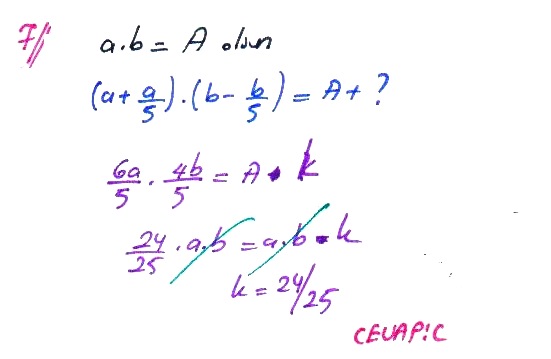 7// a.b = A olsun
(a + a/5) . (b - b/5) = A + ?
6a/5 . 4b/5 = A . k
24/25 . a.b = a.b . k
k = 24/25
CEVAP: C